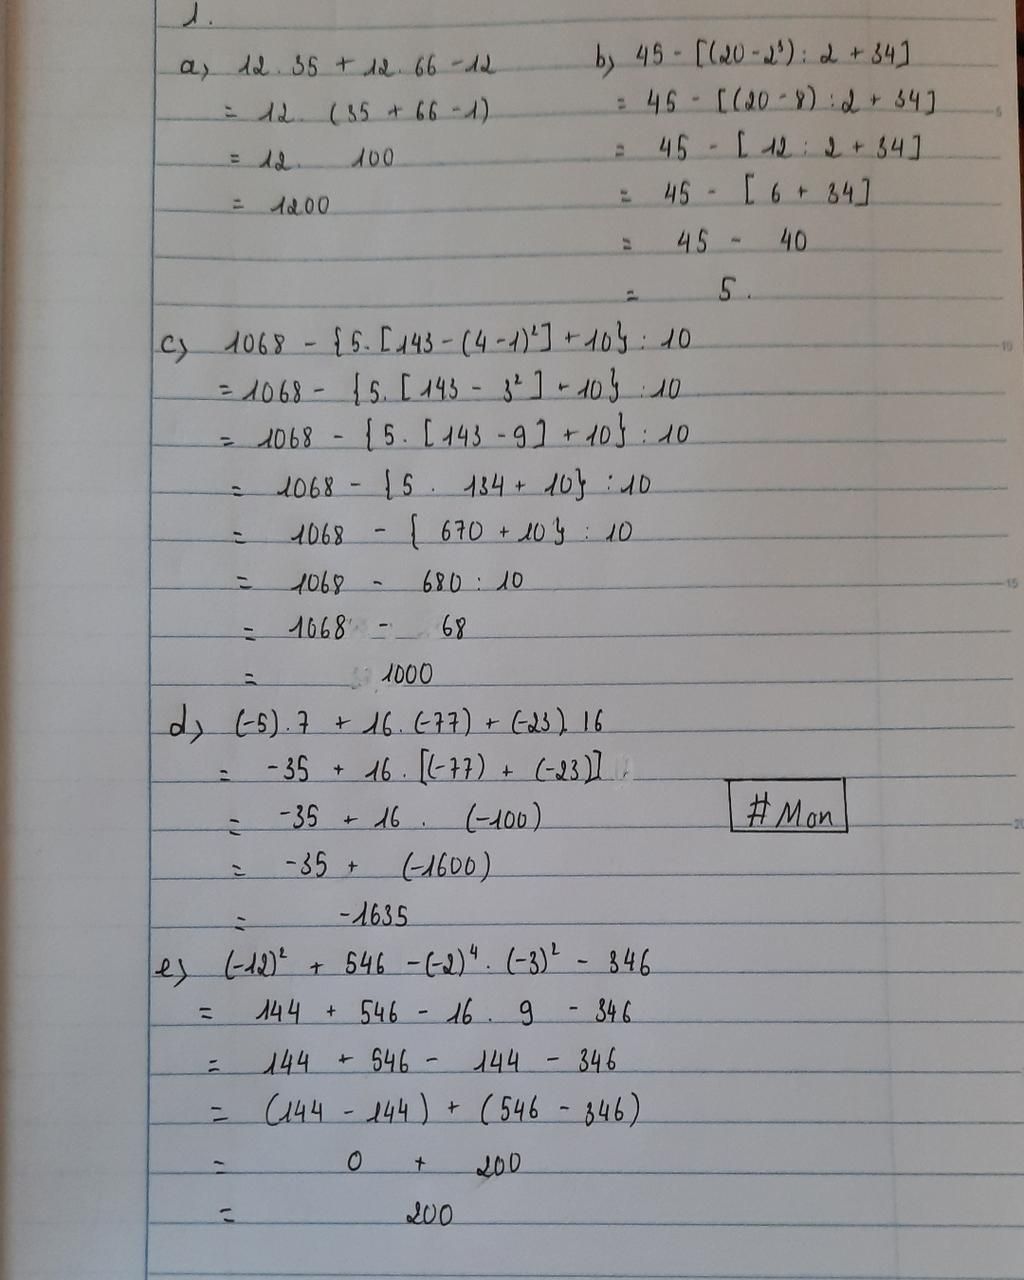 1.
a) 12 . 35 + 12 . 66 - 12
= 12 . (35 + 66 - 1)
= 12 . 100
= 1200
b) 45 - [(20 - 2³) : 2 + 34]
= 45 - [(20 - 8) : 2 + 34]
= 45 - [ 12 : 2 + 34]
= 45 - [ 6 + 34]
= 45 - 40
= 5 .
c) 1068 - {5 . [143 - (4 - 1)²] + 10} : 10
= 1068 - {5 . [143 - 3²] + 10} : 10
= 1068 - {5 . [143 - 9] + 10} : 10
= 1068 - {5 . 134 + 10} : 10
= 1068 - { 670 + 10} : 10
= 1068 - 680 : 10
= 1068 - 68
= 1000
d) (-5) . 7 + 16 . (-77) + (-23) . 16
= -35 + 16 . [(-77) + (-23)]
= -35 + 16 . (-100)
= -35 + (-1600)
= -1635
#Mon
e) (-12)² + 546 - (-2)⁴ . (-3)² - 346
= 144 + 546 - 16 . 9 - 346
= 144 + 546 - 144 - 346
= (144 - 144) + (546 - 346)
= 0 + 200
= 200